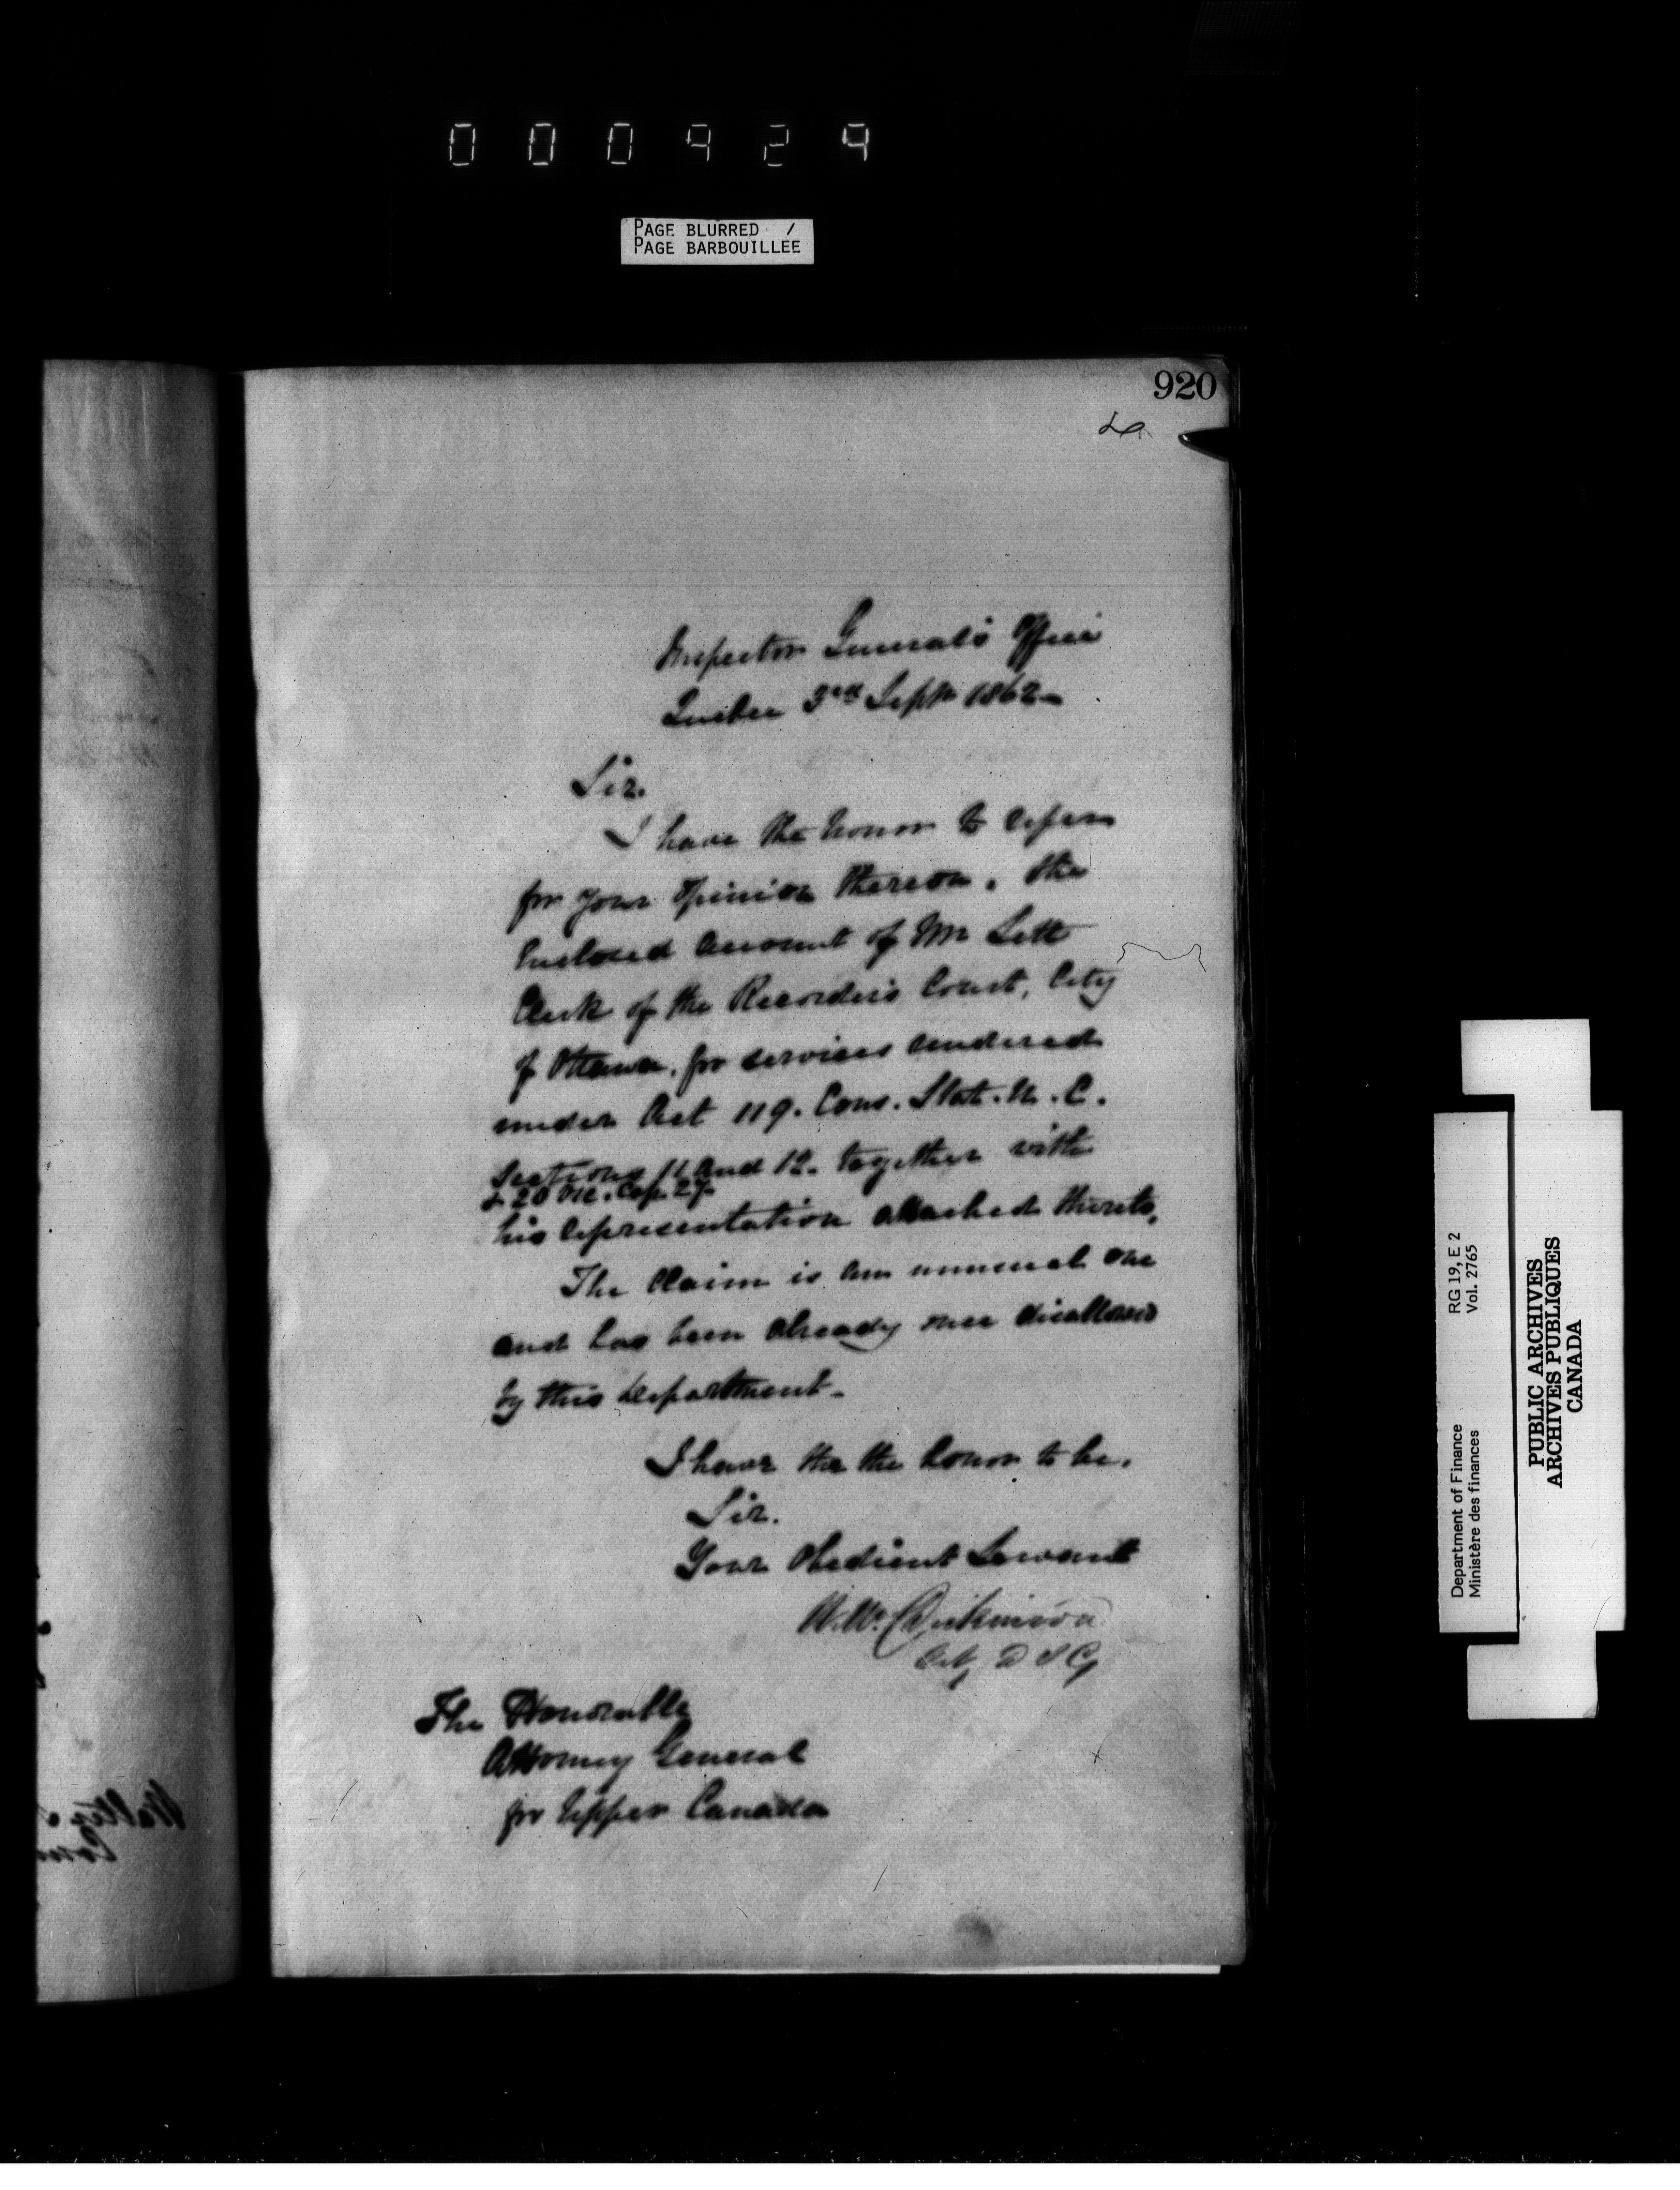 000929
PAGE BLURRED /
PAGE BARBOUILLÉE
920
Inspector General's Office
Quebec 3rd Sept 1862-
Sir.
I have the honor to refer
for your opinion thereon, the
Enclosed Account of Mr Lett
Clerk of the Recorder's Court, City
of Ottawa, for services rendered
under Act 119. Cons. Stat. U. C.
Sections 11 and 12. together with
& 20 Vic. Cap. 27
his representation attached thereto,
The Claim is an unusual one
and has been already once disallowed
by this Department-
I have the the honor to be.
Sir.
Your Obedient Servant
W. Dickinson
D I G
The Honorable
Attorney General
for Upper Canada
RG 19, E 2
Vol. 2765
Department of Finance
Ministère des finances
PUBLIC ARCHIVES
ARCHIVES PUBLIQUES
CANADA